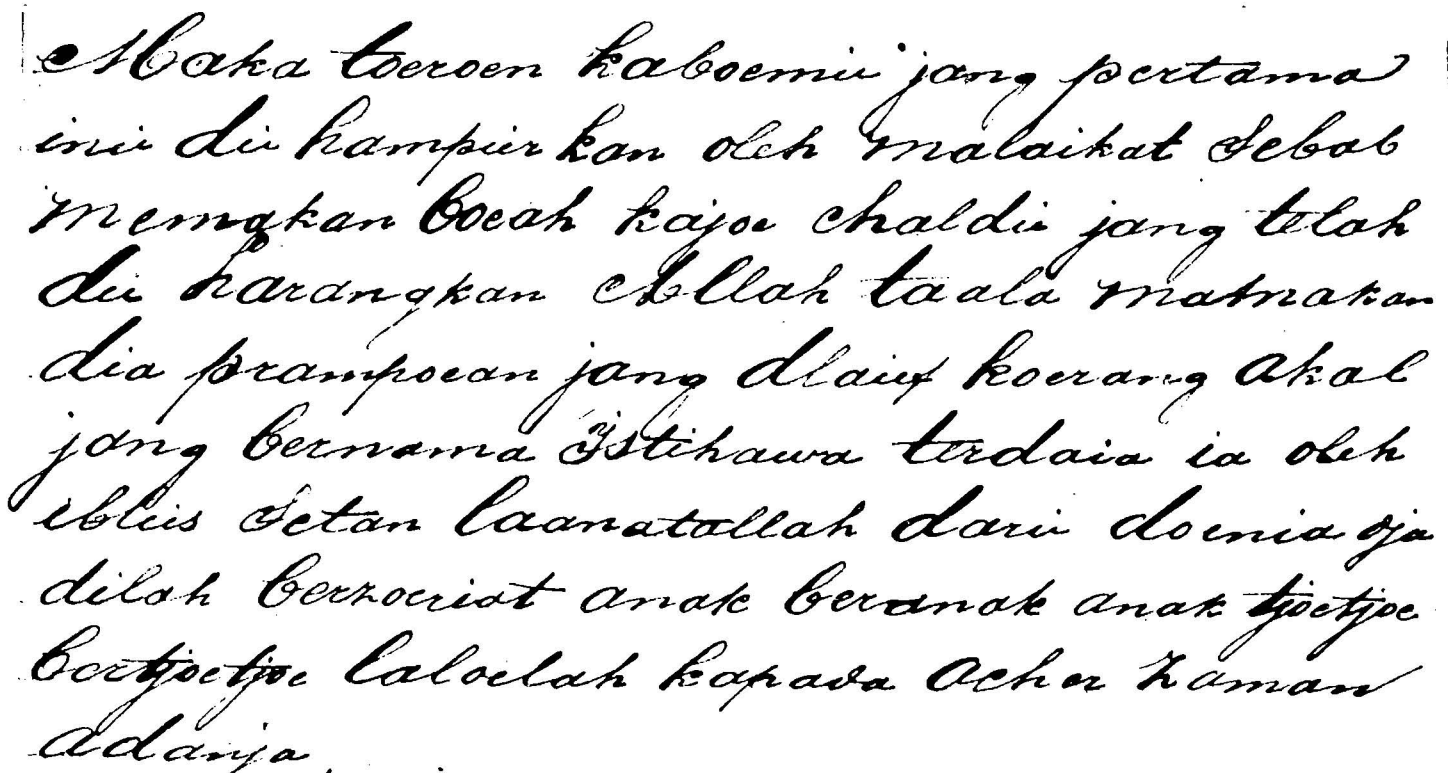 Maka toeroen kaboemi jang pertama
ini di hampier kan oleh malaikat Sebab
memakan boeah kajoe chaldi jang telah
di harangkan Allah taala matnakan
dia prampoean jang dlaif koerang akal
jang bernama Istihawa terdaia ia oleh
iblis Setan laanatallah dari doenia dja
dilah berzoeriat anak beranak anak tjoetjoe
bertjoetjoe laloelah kapada acher zaman
adanja